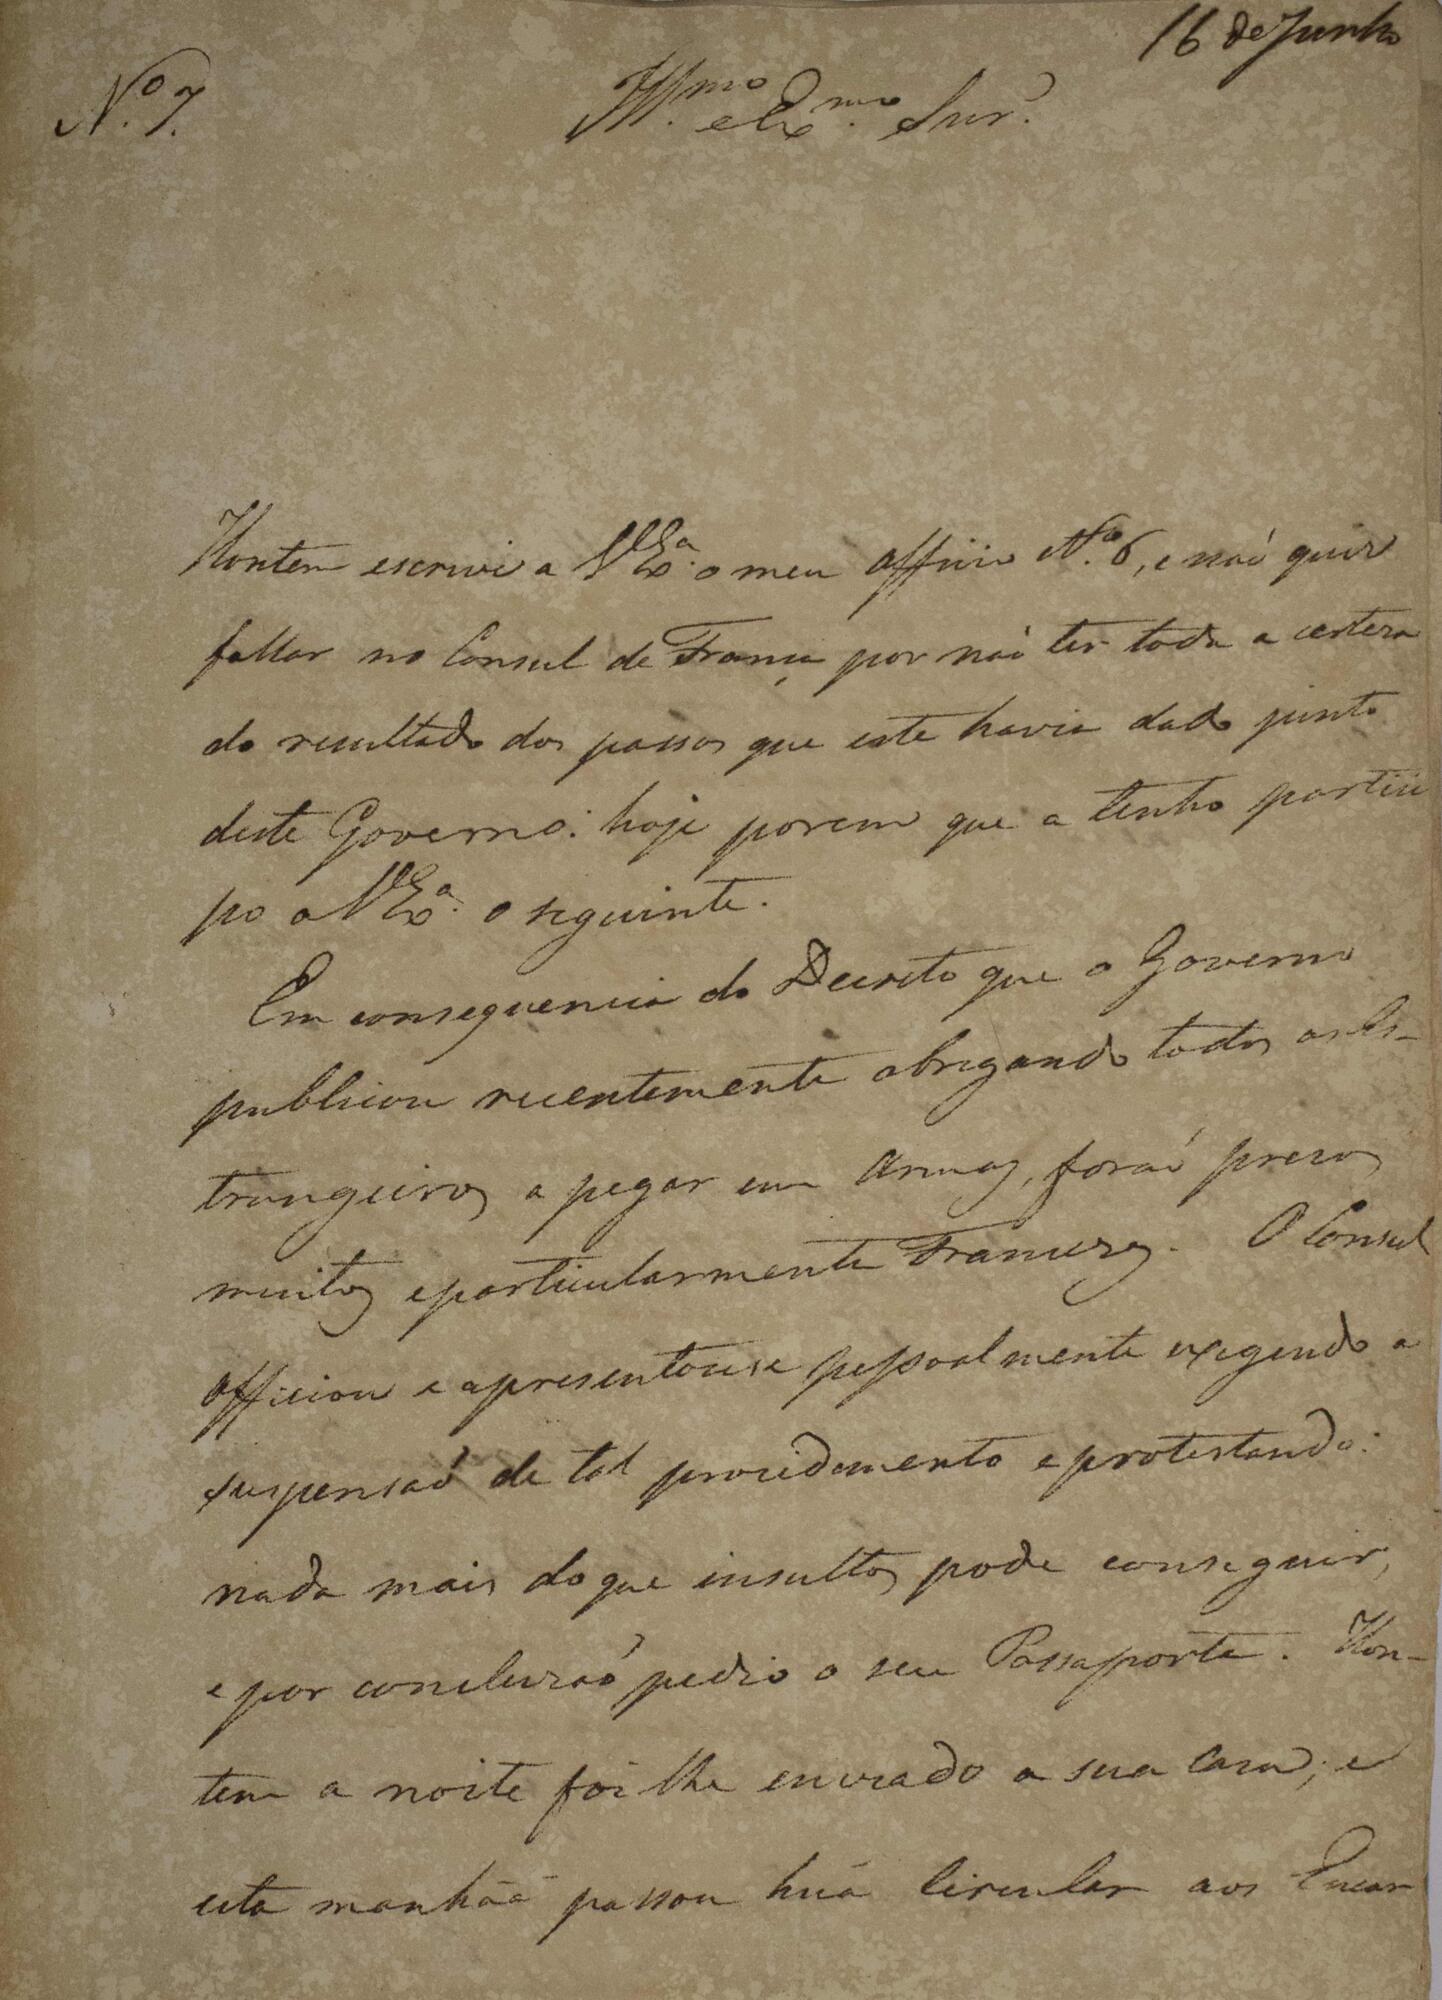 16 de Junho
N.º 7.
Ill.mo e Ex.mo Snr.
Hontem escrivi a V.Ex.a o meu officio N.º 6, e naó quiz
fallar no Consul de França por naó ter toda a certeza
do resultado dos passos que este havia dado junto
deste Governo: hoje porem que a tenho partici
po a V.Ex.a o seguinte.
Em consequencia do Decreto que o Governo
publicou recentemente obrigando todos os Es-
trangeiros a pegar em Armas, foraó prezos
muitos e particularmente Francezes. O Consul
officiou e apresentouse pessoalmente exegendo a
suspensaó de tal procidemento e protestando:
nada mais do que insultos pode conseguir,
e por concluzaó pedio o seu Passaporte. Hon-
tem a noite foi lhe enviado a sua Caza; e
esta manhãa passou huã Circular aos Encar